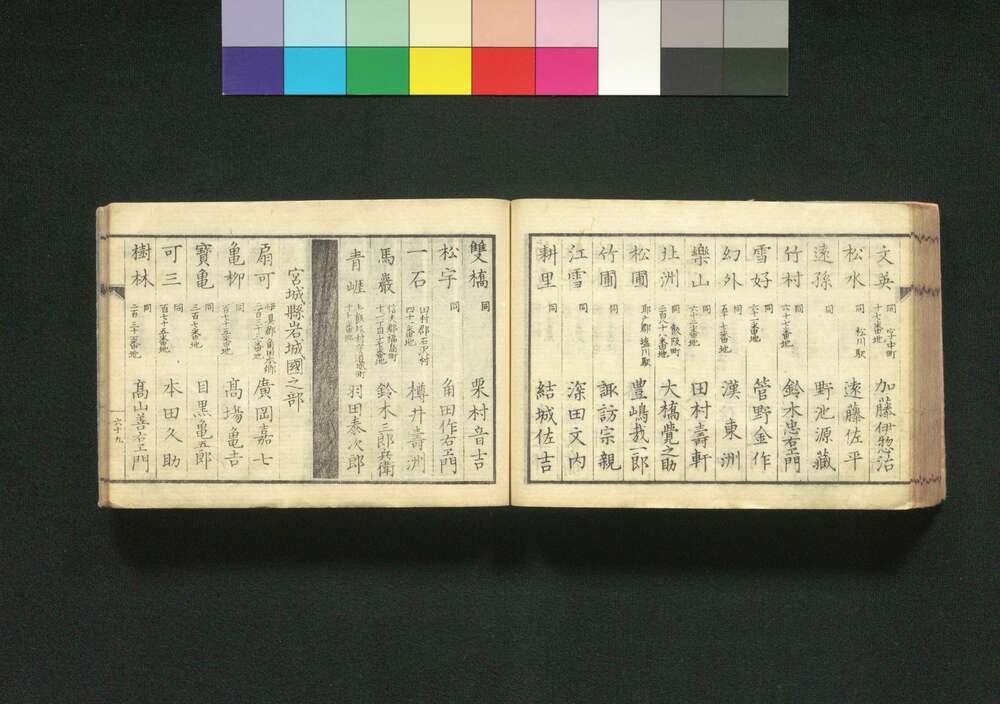 文英 同 字中町 十七番地 加藤伊惣治
松水 同 松川駅 遠藤佐平
遠孫 同 野池源藏
竹村 同 六十七番地 鈴木忠右エ門
雪好 同 六十一番地 管野金作
幻外 同 五十七番地 漢東洲
樂山 同 六十三番地 田村壽軒
北洲 同 飯阪町 二百八十八番地 大橋覺之助
松圃 耶户郡塩川駅 豊嶋哉一郎
竹圃 同 諏訪宗親
江雪 同 深田文内
耕里 同 結城佐吉
雙橋 同 栗村音吉
松字 同 角田作右エ門
一石 田村郡石沢村 四十二番地 樽井壽洲
馬巖 信夫郡福島町 鈴木三郎兵衛
青崕 羽田泰次郎
宮城縣岩城國之部
扇可 伊具郡角田本郷 廣岡嘉七
亀柳 同 百七十五番地 高場亀吉
寳亀 同 三百七番地 目黒亀五郎
可三 同 百七十五番地 本田久助
樹林 同 二百三十三番地 髙山善右エ門
六十九